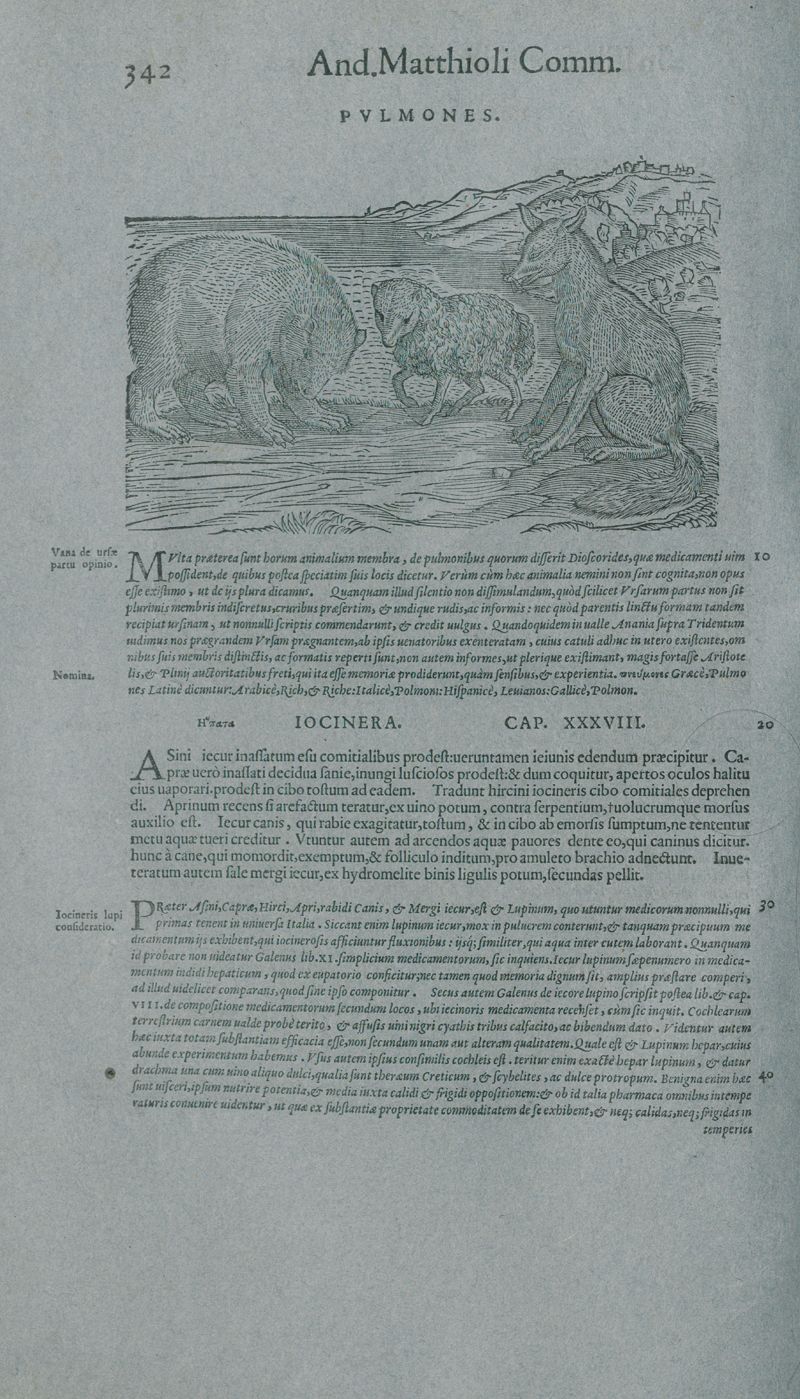 342
And. Matthioli Comm.
PVLMONES.
Vana de ursæ
partu opinio.
MVlta præterea ſunt horum animalium membra, de pulmonibus quorum diſſerit Dioſcorides, quæ medicamenti uim
10
poſſident, de quibus poſtea ſpeciatim ſuis locis dicetur. Verùm cùm hæc animalia nemini non ſint cognita, non opus
eſſe exiſtimo, ut de ijs plura dicamus. Quanquam illud ſilentio non diſſimulandum, quòd ſcilicet Vrſarum partus non ſit
plurimis membris indiſcretus, cruribus præſertim, & undique rudis, ac informis: nec quòd parentis linctu formam tandem
recipiat urſinam, ut nonnulli ſcriptis commendarunt, & credit uulgus. Quandoquidem in ualle Anania ſupra Tridentum
uidimus nos prægrandem Vrſam prægnantem, ab ipſis uenatoribus exenteratam, cuius catuli adhuc in utero exiſtentes, om
nibus ſuis membris diſtinctis, ac formatis reperti ſunt, non autem informes, ut plerique exiſtimant, magis fortaſſe Ariſtote
Nomina.
lis, & Plinij auctoritatibus freti, qui ita eſſe memoriæ prodiderunt, quàm ſenſibus, & experientia. πνεύμονες Græcè, Pulmo
nes Latinè dicuntur: Arabicè, Rich, & Riche: Italicè, Polmoni: Hiſpanicè, Leuianos: Gallicè, Polmon.
Η῞πατα IOCINERA. CAP. XXXVIII.
20
ASini iecur inaſſatum eſu comitialibus prodeſt: ueruntamen ieiunis edendum præcipitur. Ca-
præ uerò inaſſati decidua ſanie, inungi luſcioſos prodeſt: & dum coquitur, apertos oculos halitu
eius uaporari. prodeſt in cibo toſtum ad eadem. Tradunt hircini iocineris cibo comitiales deprehen
di. Aprinum recens ſi arefactum teratur, ex uino potum, contra ſerpentium, †uolucrumque morſus
auxilio eſt. Iecur canis, qui rabie exagitatur, toſtum, & in cibo ab emorſis ſumptum, ne tententur
metu aquæ tueri creditur. Vtuntur autem ad arcendos aquæ pauores dente eo, qui caninus dicitur.
hunc à cane, qui momordit, exemptum, & folliculo inditum, pro amuleto brachio adnectunt. Inue-
teratum autem ſale mergi iecur, ex hydromelite binis ligulis potum, ſecundas pellit.
Iocineris lupi
conſideratio.
PRæter Aſini, Capræ, Hirci, Apri, rabidi Canis, & Mergi iecur, eſt & Lupinum, quo utuntur medicorum nonnulli, qui
30
primas tenent in uniuerſa Italia. Siccant enim lupinum iecur, mox in puluerem conterunt, & tanquam præcipuum me
dicamentum ijs exhibent, qui iocineroſis afficiuntur fluxionibus: ijsq́; ſimiliter, qui aqua inter cutem laborant. Quanquam
id probare non uideatur Galenus lib. XI. ſimplicium medicamentorum, ſic inquiens. Iecur lupinum ſæpenumero in medica-
mentum indidi hepaticum, quod ex eupatorio conficitur; nec tamen quod memoria dignum ſit, amplius præſtare comperi,
ad illud uidelicet comparans, quod ſine ipſo componitur. Secus autem Galenus de iecore lupino ſcripſit poſtea lib. & cap.
VIII. de compoſitione medicamentorum ſecundum locos, ubi iecinoris medicamenta recenſet, cùm ſic inquit. Cochlearum
terreſtrium carnem ualde probè terito, & affuſis uini nigri cyathis tribus calfacito, ac bibendum dato. Videntur autem
hæc iuxta totam ſubſtantiam efficacia eſſe, non ſecundum unam aut alteram qualitatem. Quale eſt & Lupinum hepar, cuius
abunde experimentum habemus. Vſus autem ipſius conſimilis cochleis eſt. teritur enim exactè hepar lupinum, & datur
drachma una cum uino aliquo dulci, qualia ſunt theræum Creticum, & ſcybelites, ac dulce protropum. Benigna enim hæc
40
ſunt uiſceri, ipſum nutrire potentia, & media iuxta calidi & frigidi oppoſitionem: & ob id talia pharmaca omnibus intempe
raturis conuenire uidentur, ut quæ ex ſubſtantiæ proprietate commoditatem de ſe exhibent, & neq; calidas, neq; frigidas in
temperies